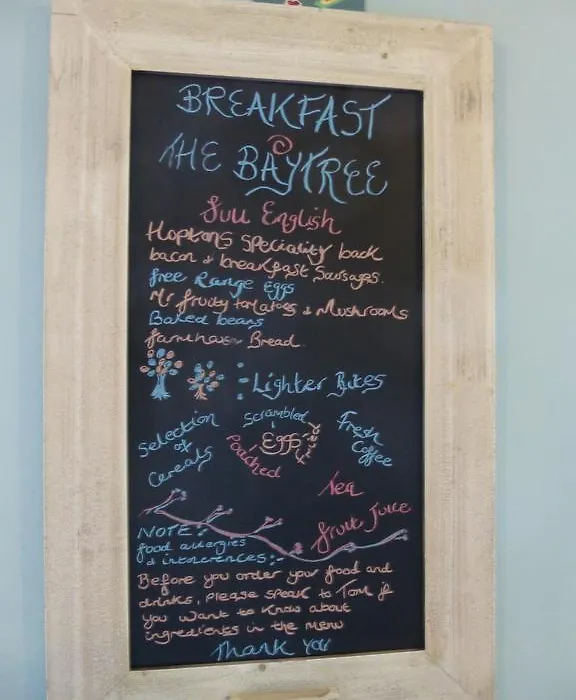 BREAKFAST
@
THE BAYTREE
Full English
Hoptons Speciality back
bacon & breakfast Sausages.
free Range Eggs
Mr fruity tomatoes & Mushrooms
Baked beans
farmhouse Bread.
:- Lighter Bites
Selection
of
Cereals
Scrambled
Eggs
Fried
Poached
Fresh
Coffee
Tea
fruit Juice
NOTE:-
food allergies
& intolerences:-
Before you order your food and
drinks, please speak to Tom if
you want to know about
ingredients in the menu
Thank you